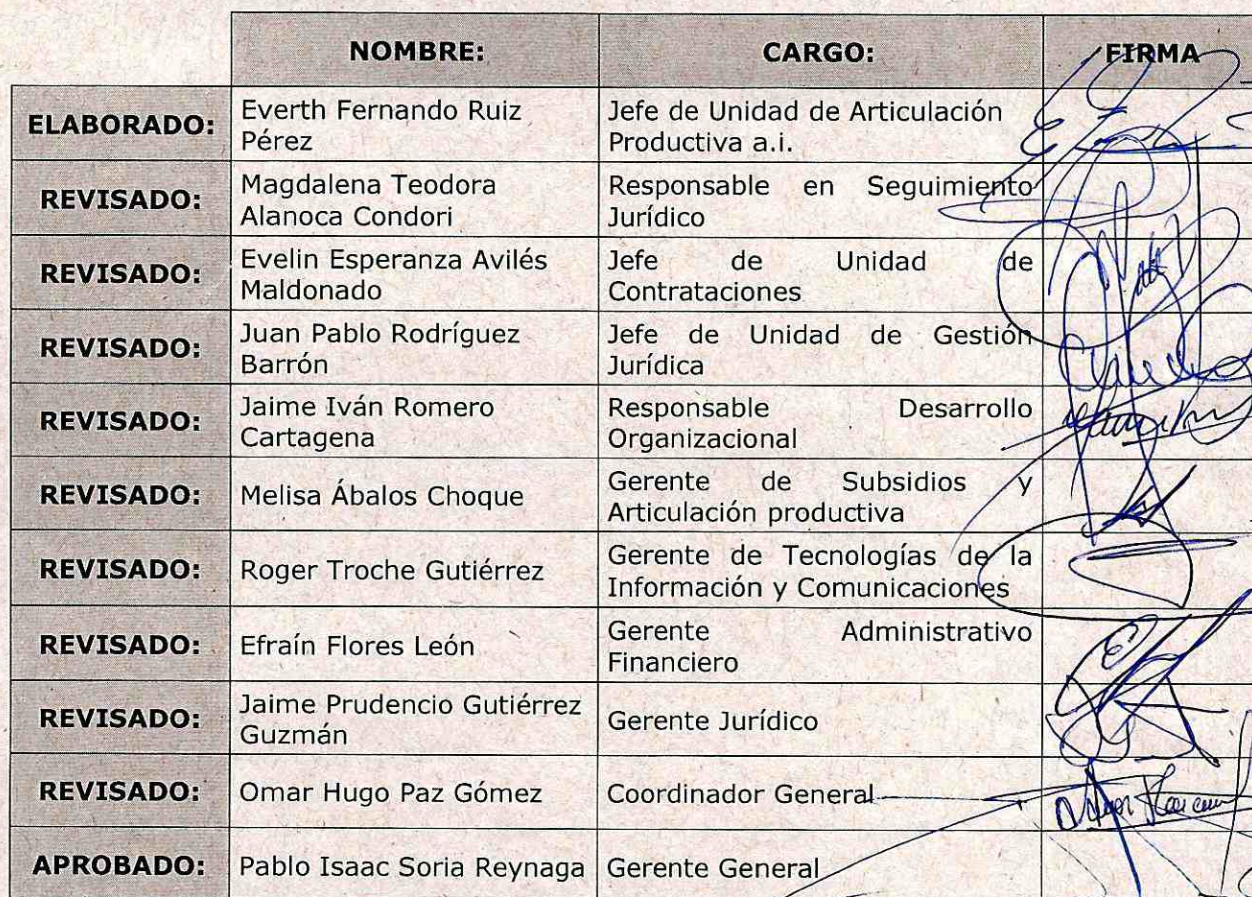 NOMBRE: CARGO: FIRMA
ELABORADO: Everth Fernando Ruiz Jefe de Unidad de Articulación
Pérez Productiva a.i.
REVISADO: Magdalena Teodora Responsable en Seguimiento
Alanoca Condori Jurídico
REVISADO: Evelin Esperanza Avilés Jefe de Unidad de
Maldonado Contrataciones
REVISADO: Juan Pablo Rodríguez Jefe de Unidad de Gestión
Barrón Jurídica
REVISADO: Jaime Iván Romero Responsable Desarrollo
Cartagena Organizacional
REVISADO: Melisa Ábalos Choque Gerente de Subsidios y
Articulación productiva
REVISADO: Roger Troche Gutiérrez Gerente de Tecnologías de la
Información y Comunicaciones
REVISADO: Efraín Flores León Gerente Administrativo
Financiero
REVISADO: Jaime Prudencio Gutiérrez Gerente Jurídico
Guzmán
REVISADO: Omar Hugo Paz Gómez Coordinador General
APROBADO: Pablo Isaac Soria Reynaga Gerente General